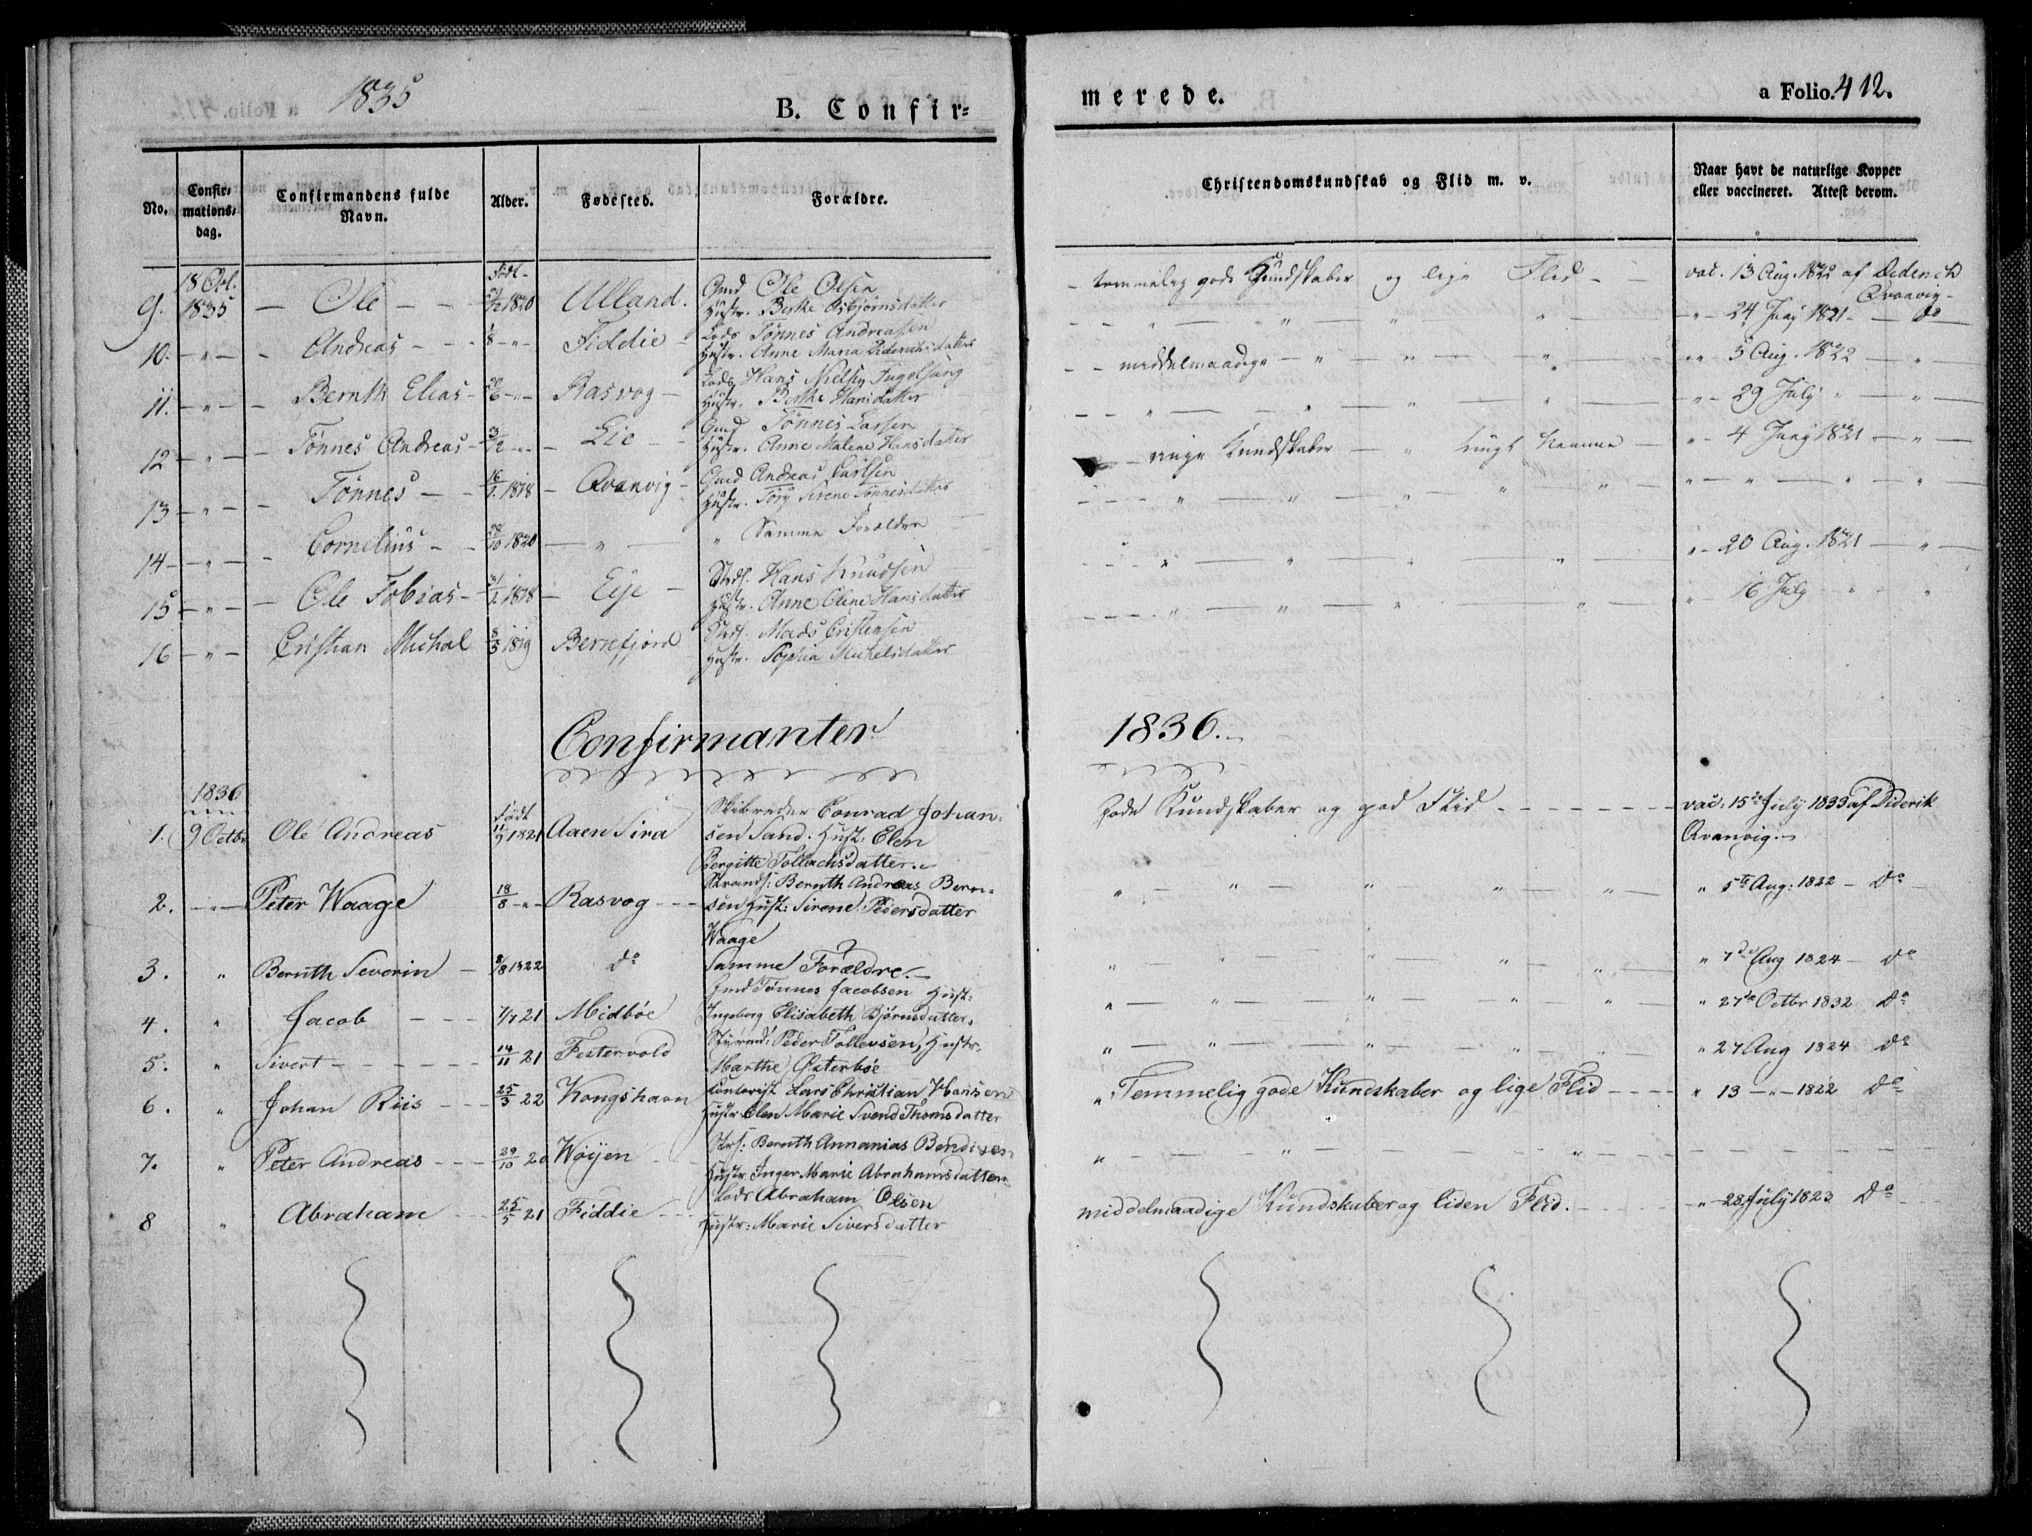 1835
B. Confir=
merede.
a Folio. 412.
No.
Confir-
mations-
dag.
Confirmandens fulde
Navn.
Alder.
Fødested.
Forældre.
Christendomskundskab og Flid m. v.
Naar havt de naturlige Kopper
eller vaccineret. Attest derom.
18 Oct.
9. 1835 — Ole — 1820 Ulland. Gmd Ole Olsen
Hustr. Berthe Asbjørnsdatter
temmelig gode Kundskaber og lige Flid — vac. 13 Aug. 1822 af Diderich
Qvanvig
10. — " — Andreas — 1/8 — " — Fiddie — Lods Tønnes Andreassen
Hustr. Anne Maria Diderichsdatter
" " " " — " — 24 1821 — do
11. — " — Bernth Elias — 20/6 — " — Rasvog — Lods Hans Nielsen
Hustr. Berthe Hansdatter
middelmaadige — " — " " — " — 5 Aug. 1822 — "
12 — " — Tønnes Andreas — — " — Lie — Gmd Tønnes Larsen
Hustr. Anne Malene Hansdatter
" " " " " — " — 29 July " — "
13 — " — Tønnes — 16/1 1818 — Qvanvig — Gmd Andreas Carlsen
Hustr. Sirene Tønnesdatter
ringe Kundskaber — " — 4 1821 — "
14 — " — Cornelius — 28/10 1820 — " — " Samme Forældre
" " " " " — " — " — "
15 — " — Ole Tobias — 1818 — Eje — Strds. Hans Knudsen
Hustr. Anne Olene Hansdatter
" " " " — " — 20 Aug. 1821 — "
16 — " — Cristian Michal 8/3 1819 Berrefjord Strds. Mads Cristensen
Hustr. Sophia Michelsdatter
" " " " — " — 16 July — " "
Confirmanter 1836.
1836
1. 9 Octbr Ole Andreas født 11/9 1821 Aaen Sira Skibreder Conrad Johan-
sen Sand. Hust: Elen
Bergitte Tollachsdatter.
Gode Kundskaber og god Flid — vac: 15de July 1833 af Diderik
Qvanvig.
2. — " — Peter Waage 18/8 — " — Rasvog — Strands: Bernth Andreas Bern-
sen Hust: Sirene Pedersdatter
Waage
" " " " " " 5te Aug: 1822 — Do
3. " Bernth Severin — 8/8 1822 Do Samme Forældre.
" " " " " " 7de Aug 1824 — Do
4. " Jacob — 7/7 21 Midbøe Gmd Tønnes Jacobsen Hust:
Ingeborg Elisabeth Bjørnsdatter.
" " " " " " 27de Octbr 1832 Do
5. " Sivert — 14/11 21 Festervold Styrmd: Peder Tollevsen, Hustr.
Marthe Østerbøe
" " " " " " 27 Aug 1824 Do
6. " Johan Riis — 25/3 22 Kongshavn Contorist Lars Christian Hansen
Hustr Elen Marie Svend Thomsdatter
" Temmelig gode Kundskaber og lige Flid — " 13 — " — 1822 Do
7. " Peter Andreas — 29/10 20 Wøyen — Strs: Bernth Annanias Bendixen
Hustr Inger Marie Abrahamsdatter
" " "
8 " Abraham — 25/5 21 Fiddie — Lods Abraham Olsen
Hustr: Marie Siversdatter
middelmaadige Kundskaber og liden Flid. — " 28 July 1823 Do